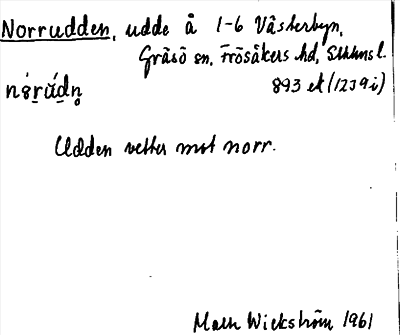 Norrudden, udde å 1-6 Västerbyn,
Gräsö sn, Frösåkers hd, Sthlms l.
893 ek (12J9i)
Udden vetter mot norr.
Mats Wickström 1961